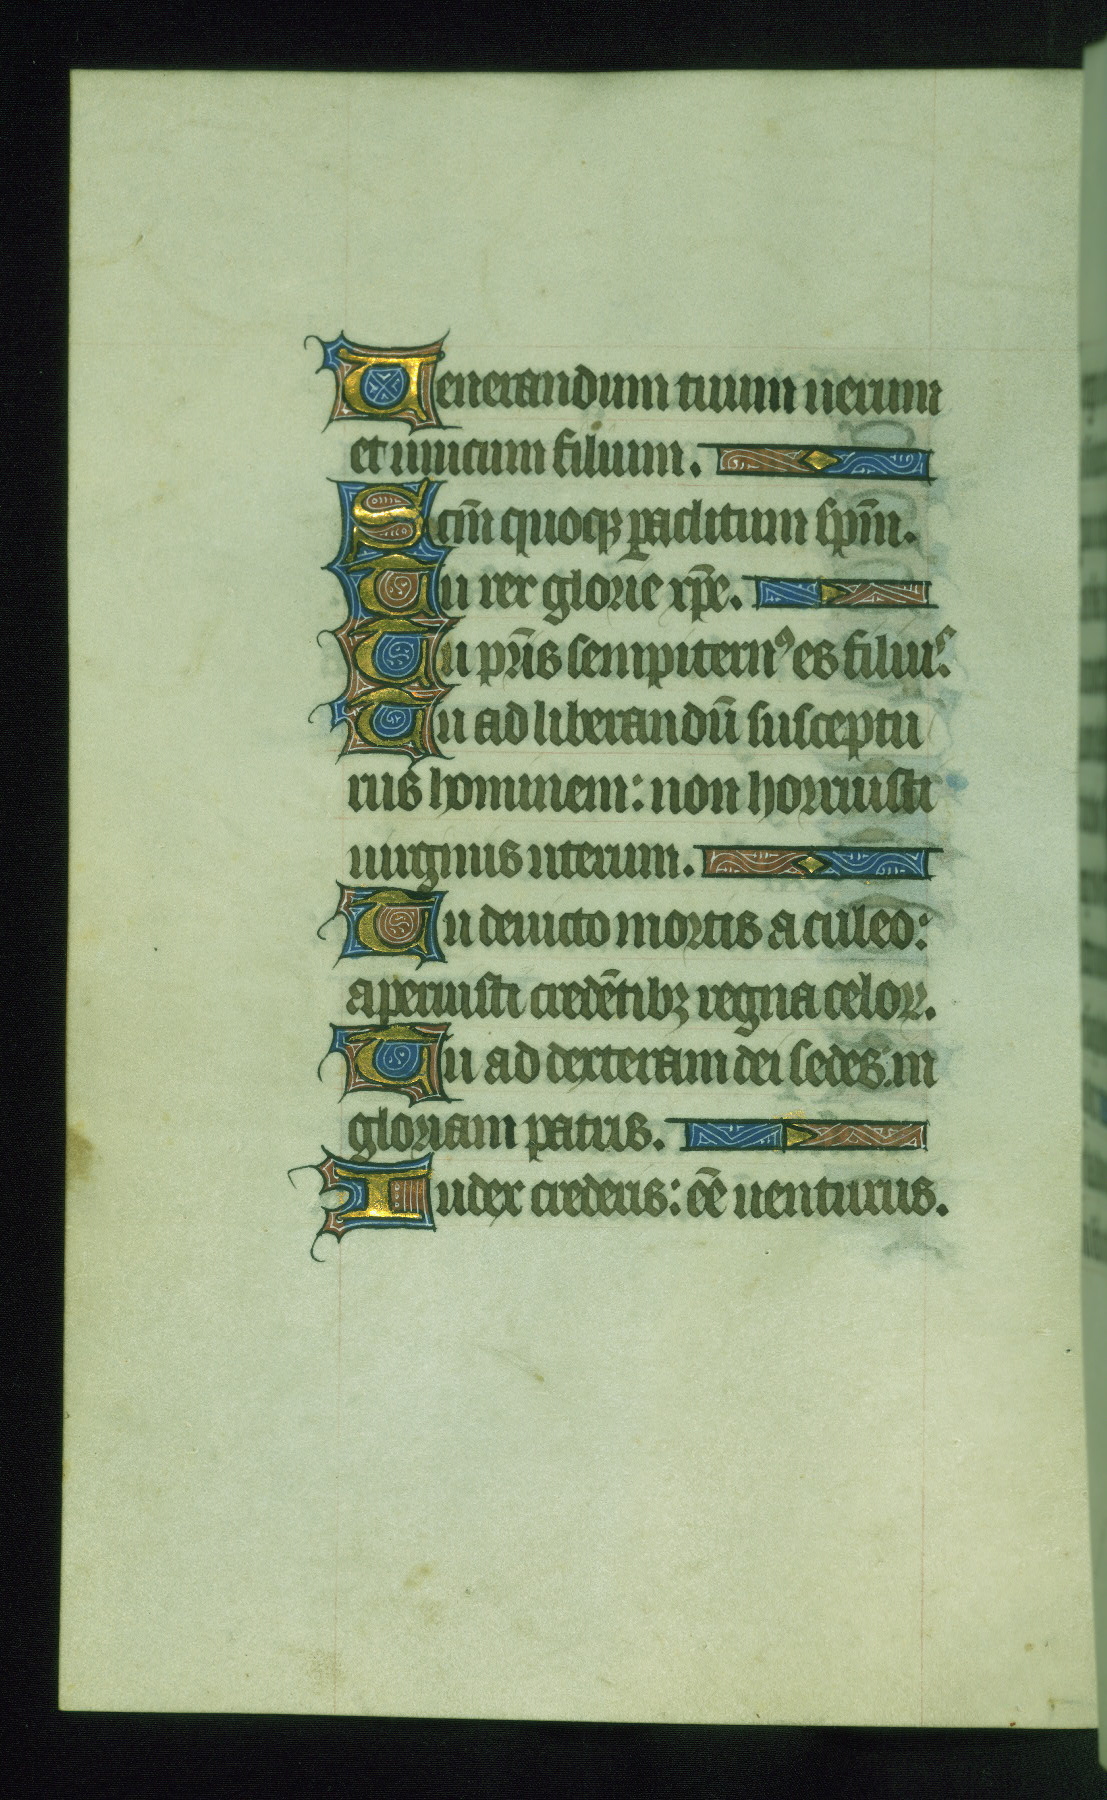 Uenerandum tuum uerum
et unicum filium.
Scm̄ quoqꝫ paclitum spm̄.
Tu rex glorie xp̄e.
Tu pr̄is sempiternꝰ es filius.
Tu ad liberandū susceptu
rus hominem: non horruisti
uirginis uterum.
Tu deuicto mortis aculeo:
aperuisti credētibꝫ regna celoꝝ.
Tu ad dexteram dei sedes: in
gloriam patris.
Iudex crederis: eē uenturus.